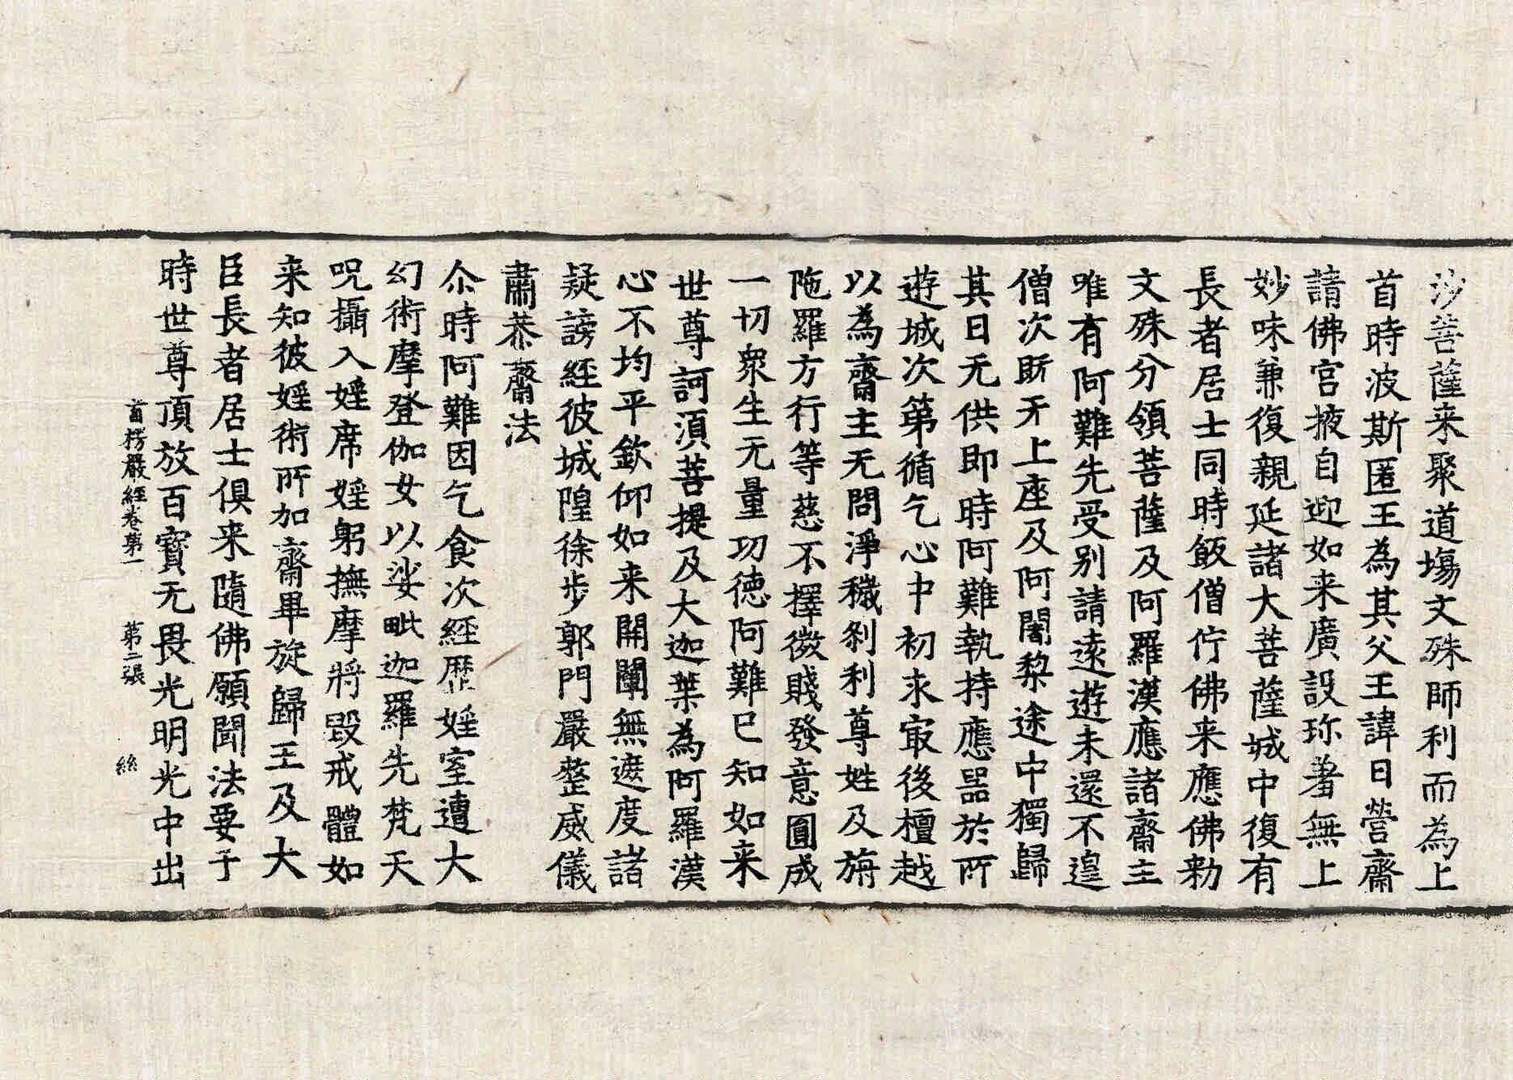 沙菩薩来聚道場文殊師利而為上
首時波斯匿王為其父王諱日營齋
請佛宫掖自迎如来廣設珎羞無上
妙味兼復親延諸大菩薩城中復有
長者居士同時飯僧佇佛来應佛勑
文殊分領菩薩及阿羅漢應諸齋主
唯有阿難先受别請遠遊未還不遑
僧次旣无上座及阿闍黎途中獨歸
其日无供即時阿難執持應噐於所
遊城次第循乞心中初求㝡後檀越
以為齋主无問淨穢刹利尊姓及旃
陁羅方行等慈不擇微賤發意圓成
一切衆生无量功德阿難已知如来
世尊訶湏菩提及大迦葉為阿羅漢
心不均平欽仰如来開闡無遮度諸
疑謗經彼城隍徐步郭門嚴整威儀
肅恭齋法
尒時阿難因乞食次經歷婬室遭大
幻術摩登伽女以娑毗迦羅先梵天
呪攝入婬席婬躬撫摩將毀戒體如
来知彼婬術所加齋畢旋歸王及大
臣長者居士俱来隨佛願聞法要于
時世尊頂放百寶无畏光明光中出
首楞嚴經卷第一 第二張 絲